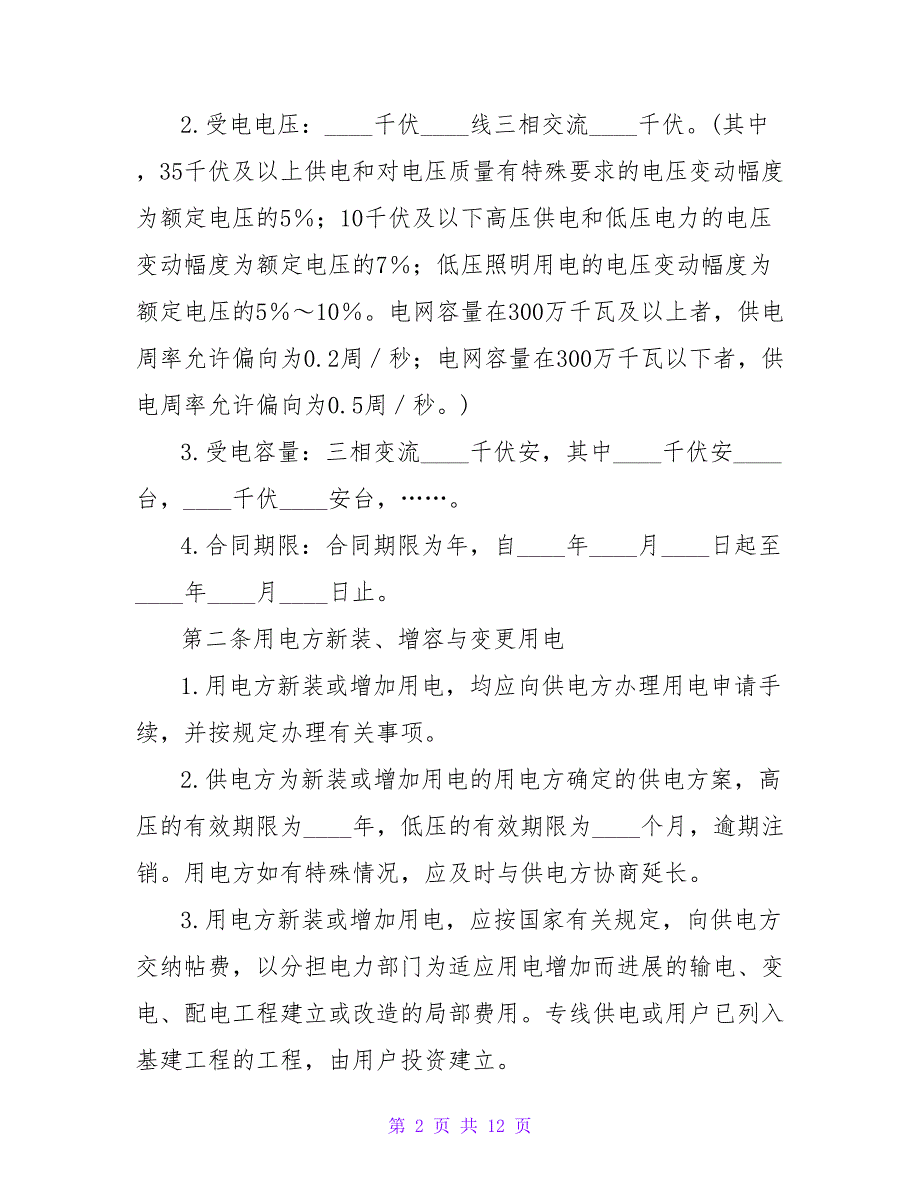 2.受电电压：____千伏____线三相交流____千伏。(其中
，35千伏及以上供电和对电压质量有特殊要求的电压变动幅度
为额定电压的5％；10千伏及以下高压供电和低压电力的电压
变动幅度为额定电压的7％；低压照明用电的电压变动幅度为
额定电压的5％～10％。电网容量在300万千瓦及以上者，供电
周率允许偏向为0.2周／秒；电网容量在300万千瓦以下者，供
电周率允许偏向为0.5周／秒。)
3.受电容量：三相变流____千伏安，其中____千伏安____
台，____千伏____安台，……。
4.合同期限：合同期限为年，自____年____月____日起至
____年____月____日止。
第二条用电方新装、增容与变更用电
1.用电方新装或增加用电，均应向供电方办理用电申请手
续，并按规定办理有关事项。
2.供电方为新装或增加用电的用电方确定的供电方案，高
压的有效期限为____年，低压的有效期限为____个月，逾期注
销。用电方如有特殊情况，应及时与供电方协商延长。
3.用电方新装或增加用电，应按国家有关规定，向供电方
交纳帖费，以分担电力部门为适应用电增加而进展的输电、变
电、配电工程建立或改造的局部费用。专线供电或用户已列入
基建工程的工程，由用户投资建立。
第 2 页 共 12 页